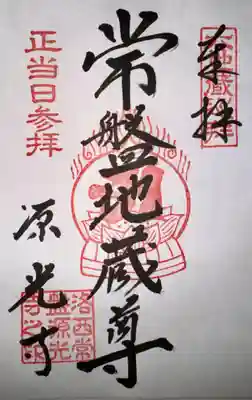 奉拝
常盤地蔵尊
正当日参拝
源光寺
洛西常
盤源光
寺之印